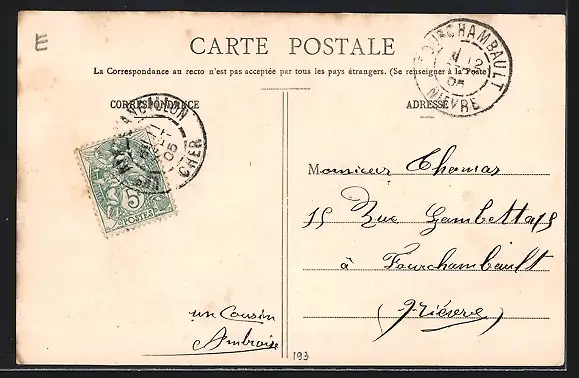 E
CARTE POSTALE
La Correspondance au recto n'est pas acceptée par tous les pays étrangers. (Se renseigner à la Poste)
FOURCHAMBAULT
12
05
NIÈVRE
CORRESPONDANCE
ADRESSE
05
CHER
5
POSTES
Monsieur Thomas
15 Rue Gambetta 15
à Fourchambault
(Nièvre)
un Cousin
Ambroise
193